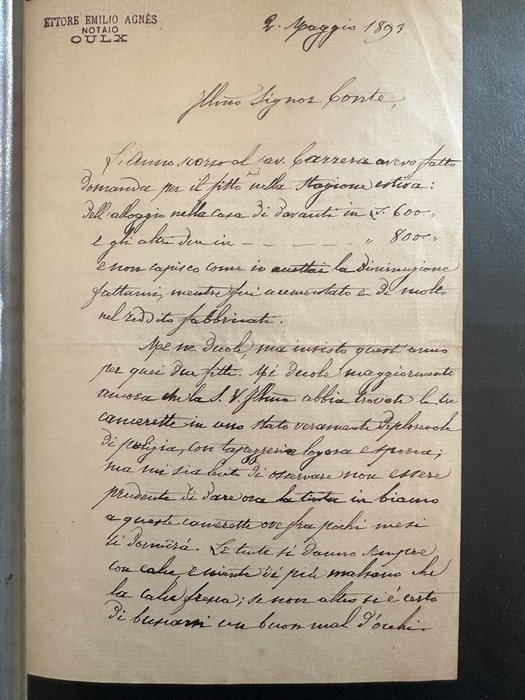 ETTORE EMILIO AGNÈS
NOTAIO
OULX
2. Maggio 1893.
Illmo Signor Conte,
L'Anno scorso al Cav. Carrera avevo fatto
domanda per il fitto nella stagione estiva:
dell'alloggio nella casa di davanti in L. 600
e gli altri due in - - - - - " 800
e non capisco come io accettai la diminuzione
fattami, mentre fui accresciuto e di molto
nel reddito fabbricati.
Me ne duole, ma insisto quest'anno
per quei due fitti. Mi duole maggiormente
ancora che la S. V. Illma abbia trovate le tre
camerette in uno stato veramente deplorevole
di pulizia, con tappezzeria logora e sporca;
ma mi sia lecito di osservare non essere
prudente di dare ora la tinta in bianco
a queste camerette ove fra pochi mesi
si dormirà. Le tinte si danno sempre
con calce e niente di più malsano che
la calce fresca; se non altro si è certo
di buscarsi un buon mal d'occhi.